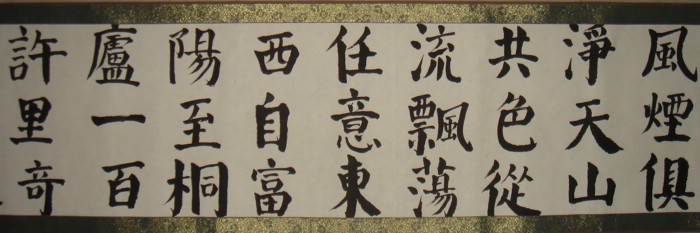 風煙俱
淨天山
共色從
流飄蕩
任意東
西自富
陽至桐
廬一百
許里奇